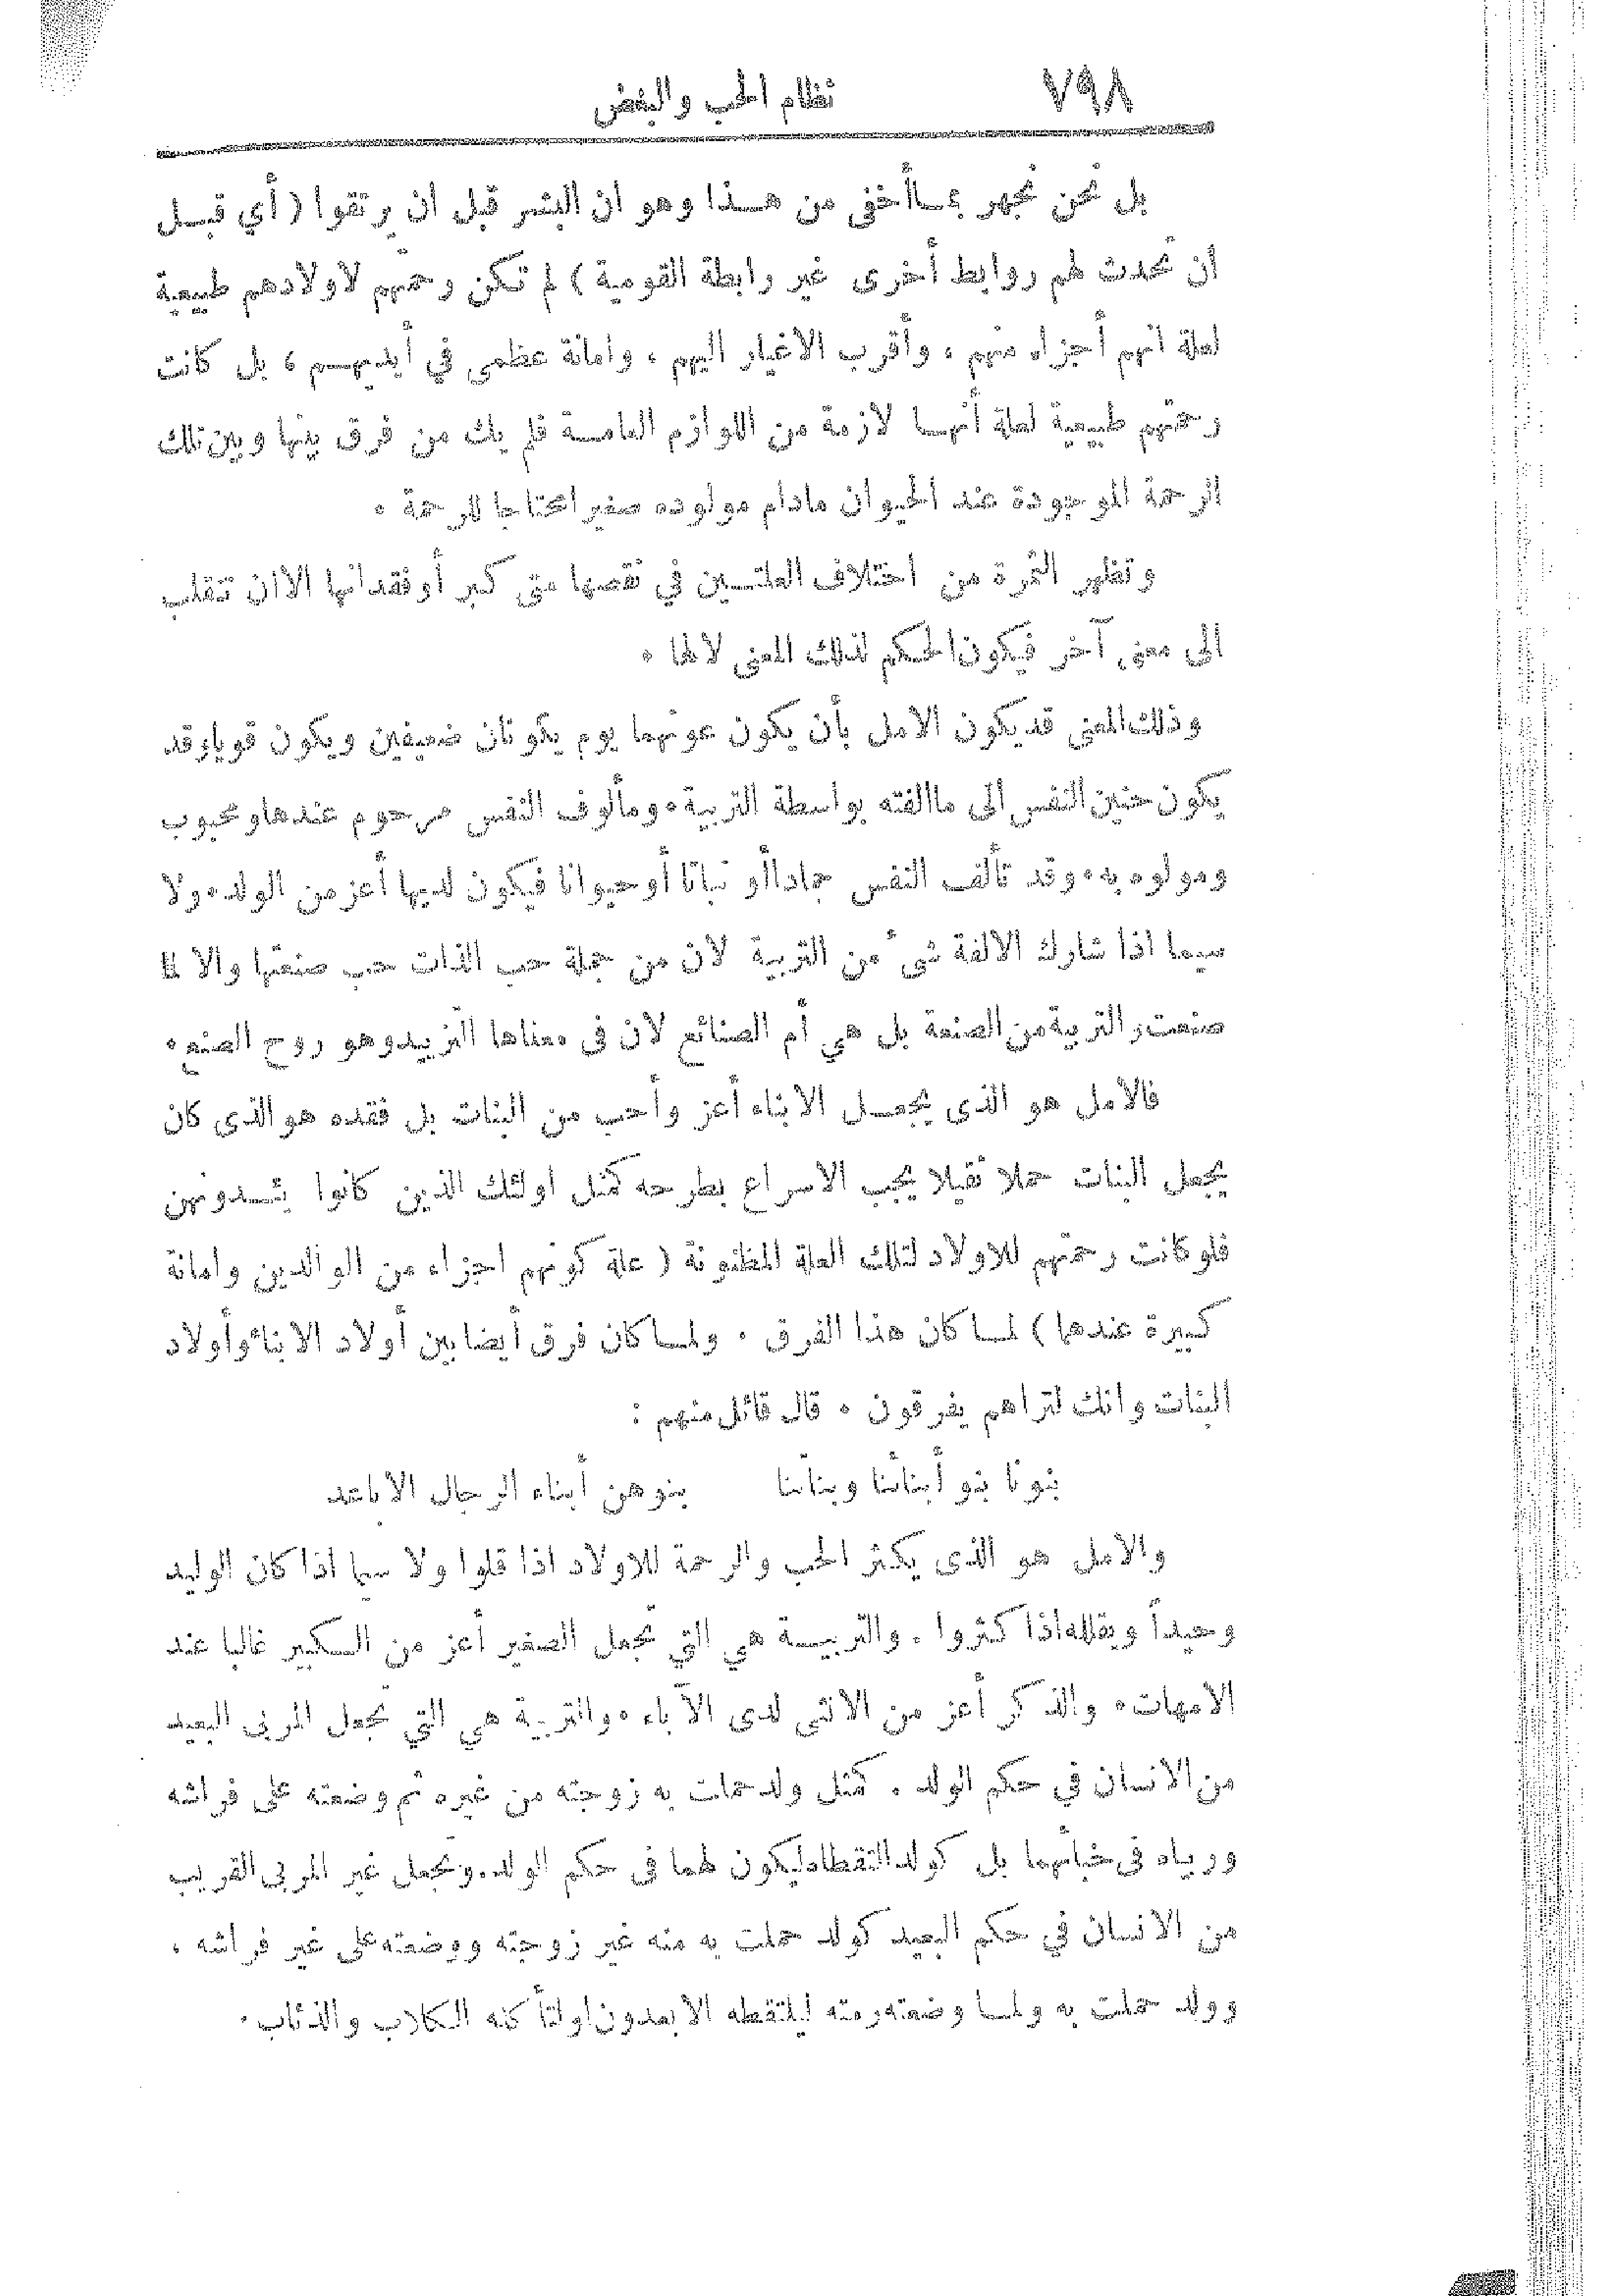 ٧٩٨ نظام الحب والبغض
بل نحن نجهر بما أخفى من هذا وهو ان البشر قبل ان يرتقوا ( أي قبل
أن تحدث لهم روابط أخرى غير رابطة القومية ) لم تكن رحمتهم لاولادهم طبيعية
لعلة انهم أجزاء منهم ، وأقرب الاغيار اليهم ، وامانة عظمى في أيديهم ، بل كانت
رحمتهم طبيعية لعلة أنها لازمة من اللوازم العامة فلم يك من فرق بينها وبين تلك
الرحمة الموجودة عند الحيوان مادام مولوده صغيرا محتاجا للرحمة .
وتظهر الثمرة من اختلاف العلتين في نقصها متى كبر أو فقدانها الا ان تنقلب
الى معنى آخر فيكون الحكم لذلك المعنى لا لها .
وذلك المعنى قد يكون الامل بأن يكون عونهما يوم يكونان ضعيفين ويكون قويا وقد
يكون حنين النفس الى ما الفته بواسطة التربية . ومألوف النفس مرحوم عندها ومحبوب
ومولوه به . وقد تألف النفس جمادا أو نباتا أو حيوانا فيكون لديها أعز من الولد . ولا
سيما اذا شارك الالفة شئ من التربية لان من جملة حب الذات حب صنعتها والا لما
صنعت والتربية من الصنعة بل هي أم الصنائع لان في معناها التزييد وهو روح الصنع .
فالامل هو الذى يجعل الابناء أعز وأحب من البنات بل فقده هو الذى كان
يجعل البنات حملا ثقيلا يجب الاسراع بطرحه كمثل اولئك الذين كانوا يئدونهن
فلو كانت رحمتهم للاولاد لتلك العلة المظنونة ( علة كونهم اجزاء من الوالدين وامانة
كبيرة عندهما ) لما كان هذا الفرق . ولما كان فرق أيضا بين أولاد الابناء وأولاد
البنات وانك لتراهم يفرقون . قال قائل منهم :
بنونا بنو أبنائنا وبناتنا بنوهن أبناء الرجال الاباعد
والامل هو الذى يكثر الحب والرحمة للاولاد اذا قلوا ولا سيما اذا كان الوليد
وحيداً ويقلله اذا كثروا . والتربية هي التي تجعل الصغير أعز من الكبير غالبا عند
الامهات . والذكر أعز من الانثى لدى الآباء . والتربية هي التي تجعل المربى البعيد
من الانسان في حكم الولد . كمثل ولد حملت به زوجته من غيره ثم وضعته على فراشه
وربياه في خبائهما بل كولد التقطاه ليكون لهما في حكم الولد . وتجعل غير المربى القريب
من الانسان في حكم البعيد كولد حملت به منه غير زوجته ووضعته على غير فراشه ،
وولد حملت به ولما وضعته رمته ليلتقطه الابعدون او لتأكله الكلاب والذئاب .